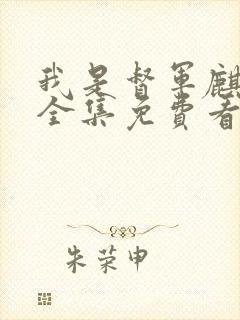 我是督军麒
全集免费看
朱荣申